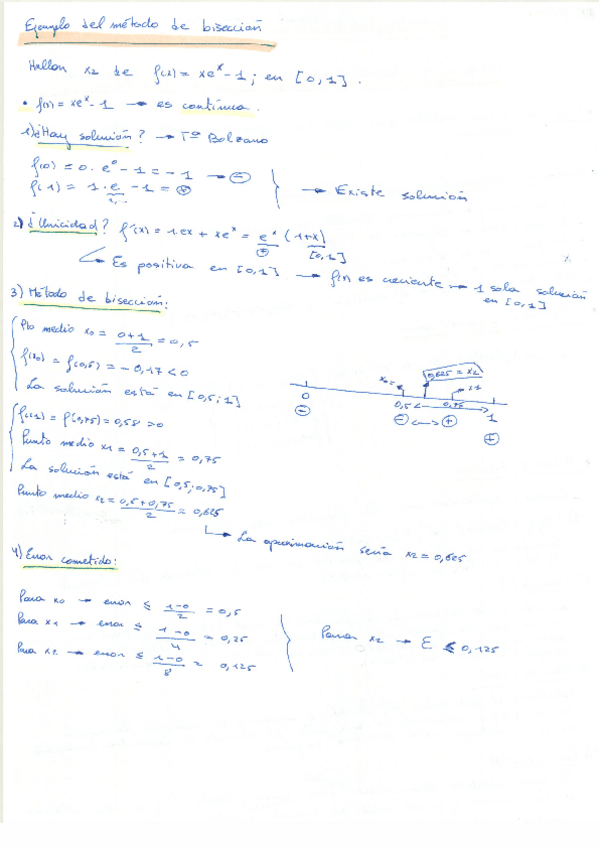 Ejemplo del método de bisección
Hallar x₂ de f(x) = xeˣ - 1; en [0,1].
• f(x) = xeˣ - 1 → es continua.
1) ¿Hay solución? → Tª Bolzano
f(0) = 0 · e⁰ - 1 = - 1 → ⊖
f(1) = 1 · e - 1 = ⊕
2,..
→ Existe solución
2) ¿Unicidad? f'(x) = 1eˣ + xeˣ = eˣ (1+x)
⊕ [0,1]
↳ Es positiva en [0,1] → f(x) es creciente → 1 sola solución
en [0,1]
3) Método de bisección:
Pto medio x₀ = 0+1/2 = 0,5
f(x₀) = f(0,5) = - 0,17 < 0
La solución está en [0,5;1]
x₀= 0,625 = x₂ x1
0 0,5 ← 0,75 → 1
⊖ ⊖ ↔ ⊕ ⊕
f(x1) = f(0,75) = 0,58 > 0
Punto medio x1 = 0,5+1/2 = 0,75
La solución está en [0,5;0,75]
Punto medio x₂ = 0,5+0,75/2 = 0,625
↳ La aproximación sería x₂ = 0,625
4) Error cometido:
Para x₀ → error ≤ 1-0/2 = 0,5
Para x₁ → error ≤ 1-0/4 = 0,25
Para x₂ → error ≤ 1-0/8 = 0,125
Para x₂ → E ≤ 0,125